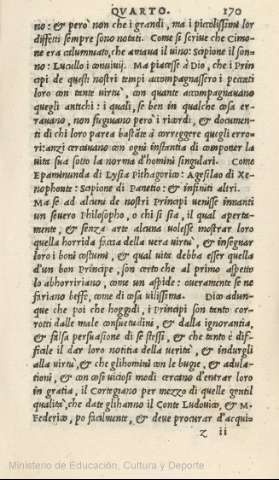 QVARTO. 170
no: & però non che i grandi, ma i piccolissimi lor
diffetti sempre sono notati. Come si scriue che Cimo-
ne era calumniato, che amaua il uino: Scipione il son-
no: Lucullo i conuiuij. Ma piacesse à Dio, che i Prin-
cipi de questi nostri tempi accompagnassero i peccati
loro con tante uirtù, con quante accompagnauano
quegli antichi: i quali, se ben in qualche cosa er-
rauano, non fugiuano però i ricordi, & documen-
ti di chi loro parea bastãte à correggere quegli erro-
ri: anzi cercauano con ogni instantia di componer la
uita sua sotto la norma d'homini singulari. Come
Epaminunda di Lysia Pithagorico: Agesilao di Xe-
nophonte: Scipione di Panetio: & infiniti altri.
Ma se ad alcuni de nostri Principi uenisse innanti
un seuero Philosopho, o chi si sia, il qual aperta-
mente, & senza arte alcuna uolesse mostrar loro
quella horrida faccia della uera uirtù, & insegnar
loro i boni costumi, & qual uita debba esser quella
d'un bon Principe, son certo che al primo aspetto
lo abhorririano, come un aspide: oueramente se ne
fariano beffe, come di cosa uilissima. Dico adun-
que che poi che hoggidi, i Principi son tanto cor-
rotti dalle male consuetudini, & dalla ignorantia,
& falsa persuasione di se stessi, & che tanto è dif-
ficile il dar loro notitia della uerità, & indurgli
alla uirtù, & che glihomini con le bugie, & adula-
tioni, & con cosi uiciosi modi cercano d'entrar loro
in gratia, il Cortegiano per mezzo di quelle gentil
qualità, che date glihanno il Conte Ludouico, & M.
Federico, po facilmente, & deue procurar d'acqui-
z ii
Ministerio de Educación, Cultura y Deporte